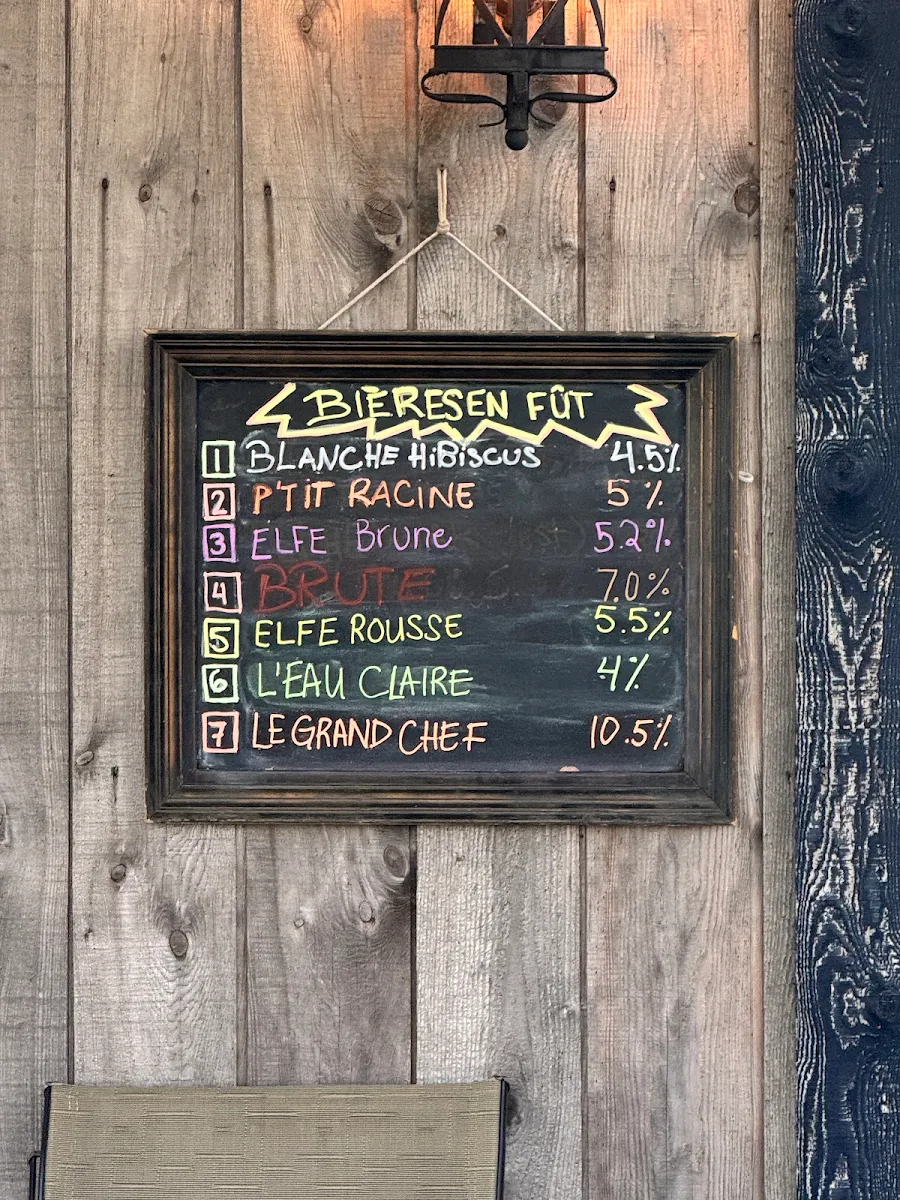 BIÈRES EN FÛT
1 BLANCHE HiBiSCUS 4.5%
2 P'TIT RACINE 5 %
3 ELFE Brune 5.2%
4 BRUTE 7.0%
5 ELFE ROUSSE 5.5%
6 L'EAU CLAIRE 4%
7 LE GRAND CHEF 10.5%